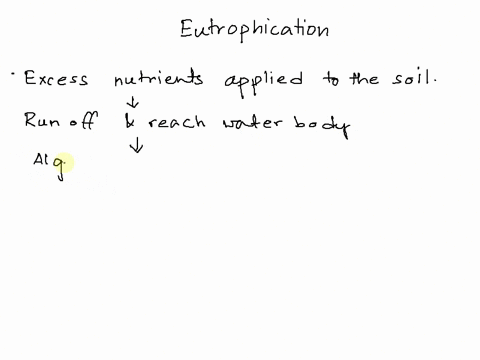 Eutrophication
· Excess nutrients applied to the soil.
↓
Run off & reach water body
↓
Alg